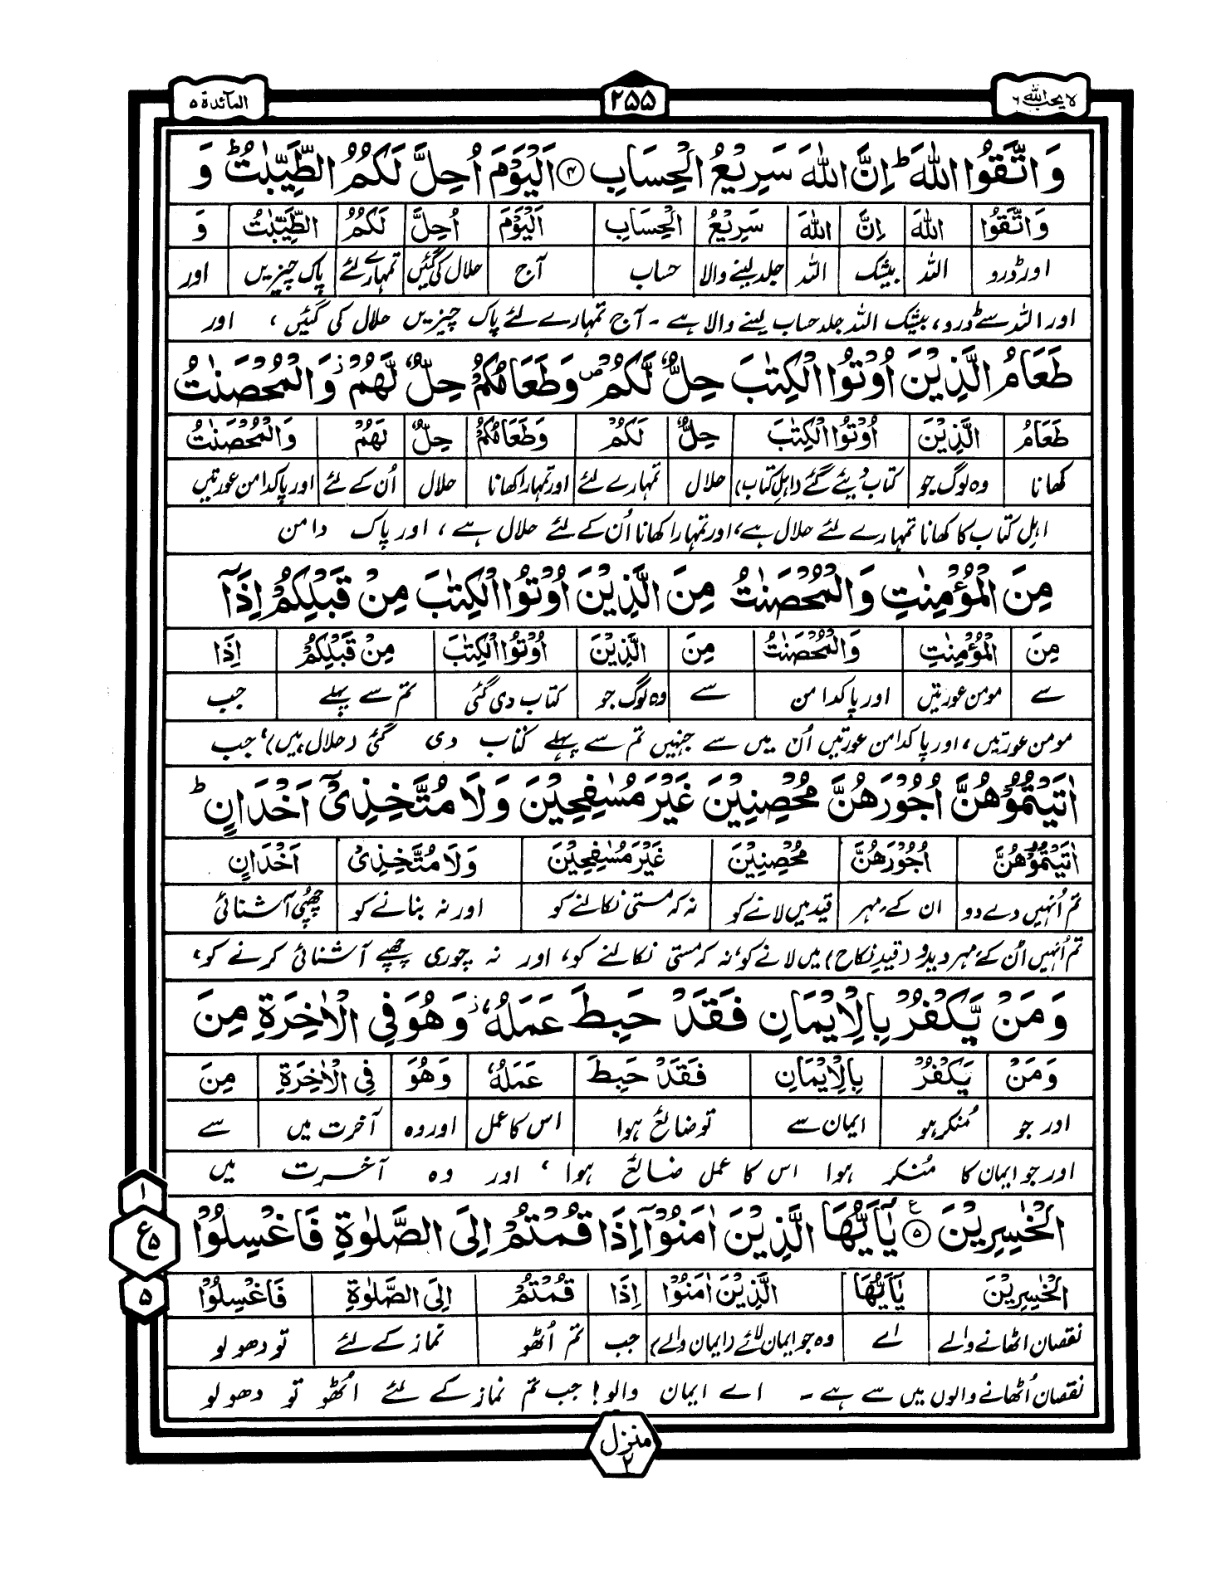 لا يحب الله ٦
٢٥٥
المآئدة ٥
وَاتَّقُوا اللّٰهَ ؕ اِنَّ اللّٰهَ سَرِيْعُ الْحِسَابِ ﴿۴﴾ اَلْيَوْمَ اُحِلَّ لَكُمُ الطَّيِّبٰتُ ؕ وَ
وَاتَّقُوا اللّٰهَ اِنَّ اللّٰهَ سَرِيْعُ الْحِسَابِ اَلْيَوْمَ اُحِلَّ لَكُمُ الطَّيِّبٰتُ وَ
اور ڈرو اللہ بیشک اللہ جلد لینے والا حساب آج حلال کی گئیں تمہارے لئے پاک چیزیں اور
اور اللہ سے ڈرو، بیشک اللہ جلد حساب لینے والا ہے ۔ آج تمہارے لئے پاک چیزیں حلال کی گئیں ، اور
طَعَامُ الَّذِيْنَ اُوْتُوا الْكِتٰبَ حِلٌّ لَّكُمْ ۪ وَطَعَامُكُمْ حِلٌّ لَّهُمْ ۫ وَالْمُحْصَنٰتُ
طَعَامُ الَّذِيْنَ اُوْتُوا الْكِتٰبَ حِلٌّ لَكُمْ وَطَعَامُكُمْ حِلٌّ لَهُمْ وَالْمُحْصَنٰتُ
کھانا وہ لوگ جو کتاب دیئے گئے (اہل کتاب) حلال تمہارے لئے اور تمہارا کھانا حلال اُن کے لئے اور پاکدامن عورتیں
اہل کتاب کا کھانا تمہارے لئے حلال ہے، اور تمہارا کھانا اُن کے لئے حلال ہے ، اور پاک دامن
مِنَ الْمُؤْمِنٰتِ وَالْمُحْصَنٰتُ مِنَ الَّذِيْنَ اُوْتُوا الْكِتٰبَ مِنْ قَبْلِكُمْ اِذَآ
مِنَ الْمُؤْمِنٰتِ وَالْمُحْصَنٰتُ مِنَ الَّذِيْنَ اُوْتُوا الْكِتٰبَ مِنْ قَبْلِكُمْ اِذَا
سے مومن عورتیں اور پاکدامن سے وہ لوگ جو کتاب دی گئی تم سے پہلے جب
مومن عورتیں ، اور پاکدامن عورتیں اُن میں سے جنہیں تم سے پہلے کتاب دی گئی (حلال ہیں) ، جب
اٰتَيْتُمُوْهُنَّ اُجُوْرَهُنَّ مُحْصِنِيْنَ غَيْرَ مُسٰفِحِيْنَ وَلَا مُتَّخِذِيْٓ اَخْدَانٍ ؕ
اٰتَيْتُمُوْهُنَّ اُجُوْرَهُنَّ مُحْصِنِيْنَ غَيْرَ مُسٰفِحِيْنَ وَلَا مُتَّخِذِيْ اَخْدَانٍ
تم اُنہیں دے دو ان کے مہر قید میں لانے کو نہ کہ مستی نکالنے کو اور نہ بنانے کو چھپی آشنائی
تم اُنہیں اُن کے مہر دیدو (قیدِ نکاح) میں لانے کو، نہ کہ مستی نکالنے کو، اور نہ چوری چھپے آشنائی کرنے کو،
وَمَنْ يَّكْفُرْ بِالْاِيْمَانِ فَقَدْ حَبِطَ عَمَلُهٗ ۫ وَهُوَ فِي الْاٰخِرَةِ مِنَ
وَمَنْ يَكْفُرْ بِالْاِيْمَانِ فَقَدْ حَبِطَ عَمَلُهٗ وَهُوَ فِي الْاٰخِرَةِ مِنَ
اور جو مُنکر ہو ایمان سے تو ضائع ہوا اس کا عمل اور وہ آخرت میں سے
اور جو ایمان کا مُنکر ہوا اس کا عمل ضائع ہوا ، اور وہ آخرت میں
الْخٰسِرِيْنَ ﴿۵﴾ يٰٓاَيُّهَا الَّذِيْنَ اٰمَنُوْٓا اِذَا قُمْتُمْ اِلَى الصَّلٰوةِ فَاغْسِلُوْا
١
ع ٥
٥
الْخٰسِرِيْنَ يٰٓاَيُّهَا الَّذِيْنَ اٰمَنُوْا اِذَا قُمْتُمْ اِلَى الصَّلٰوةِ فَاغْسِلُوْا
نقصان اٹھانے والے اے وہ جو ایمان لائے (ایمان والے) جب تم اُٹھو نماز کے لئے تو دھو لو
نقصان اُٹھانے والوں میں سے ہے ۔ اے ایمان والو! جب تم نماز کے لئے اُٹھو تو دھو لو
منزل ٢